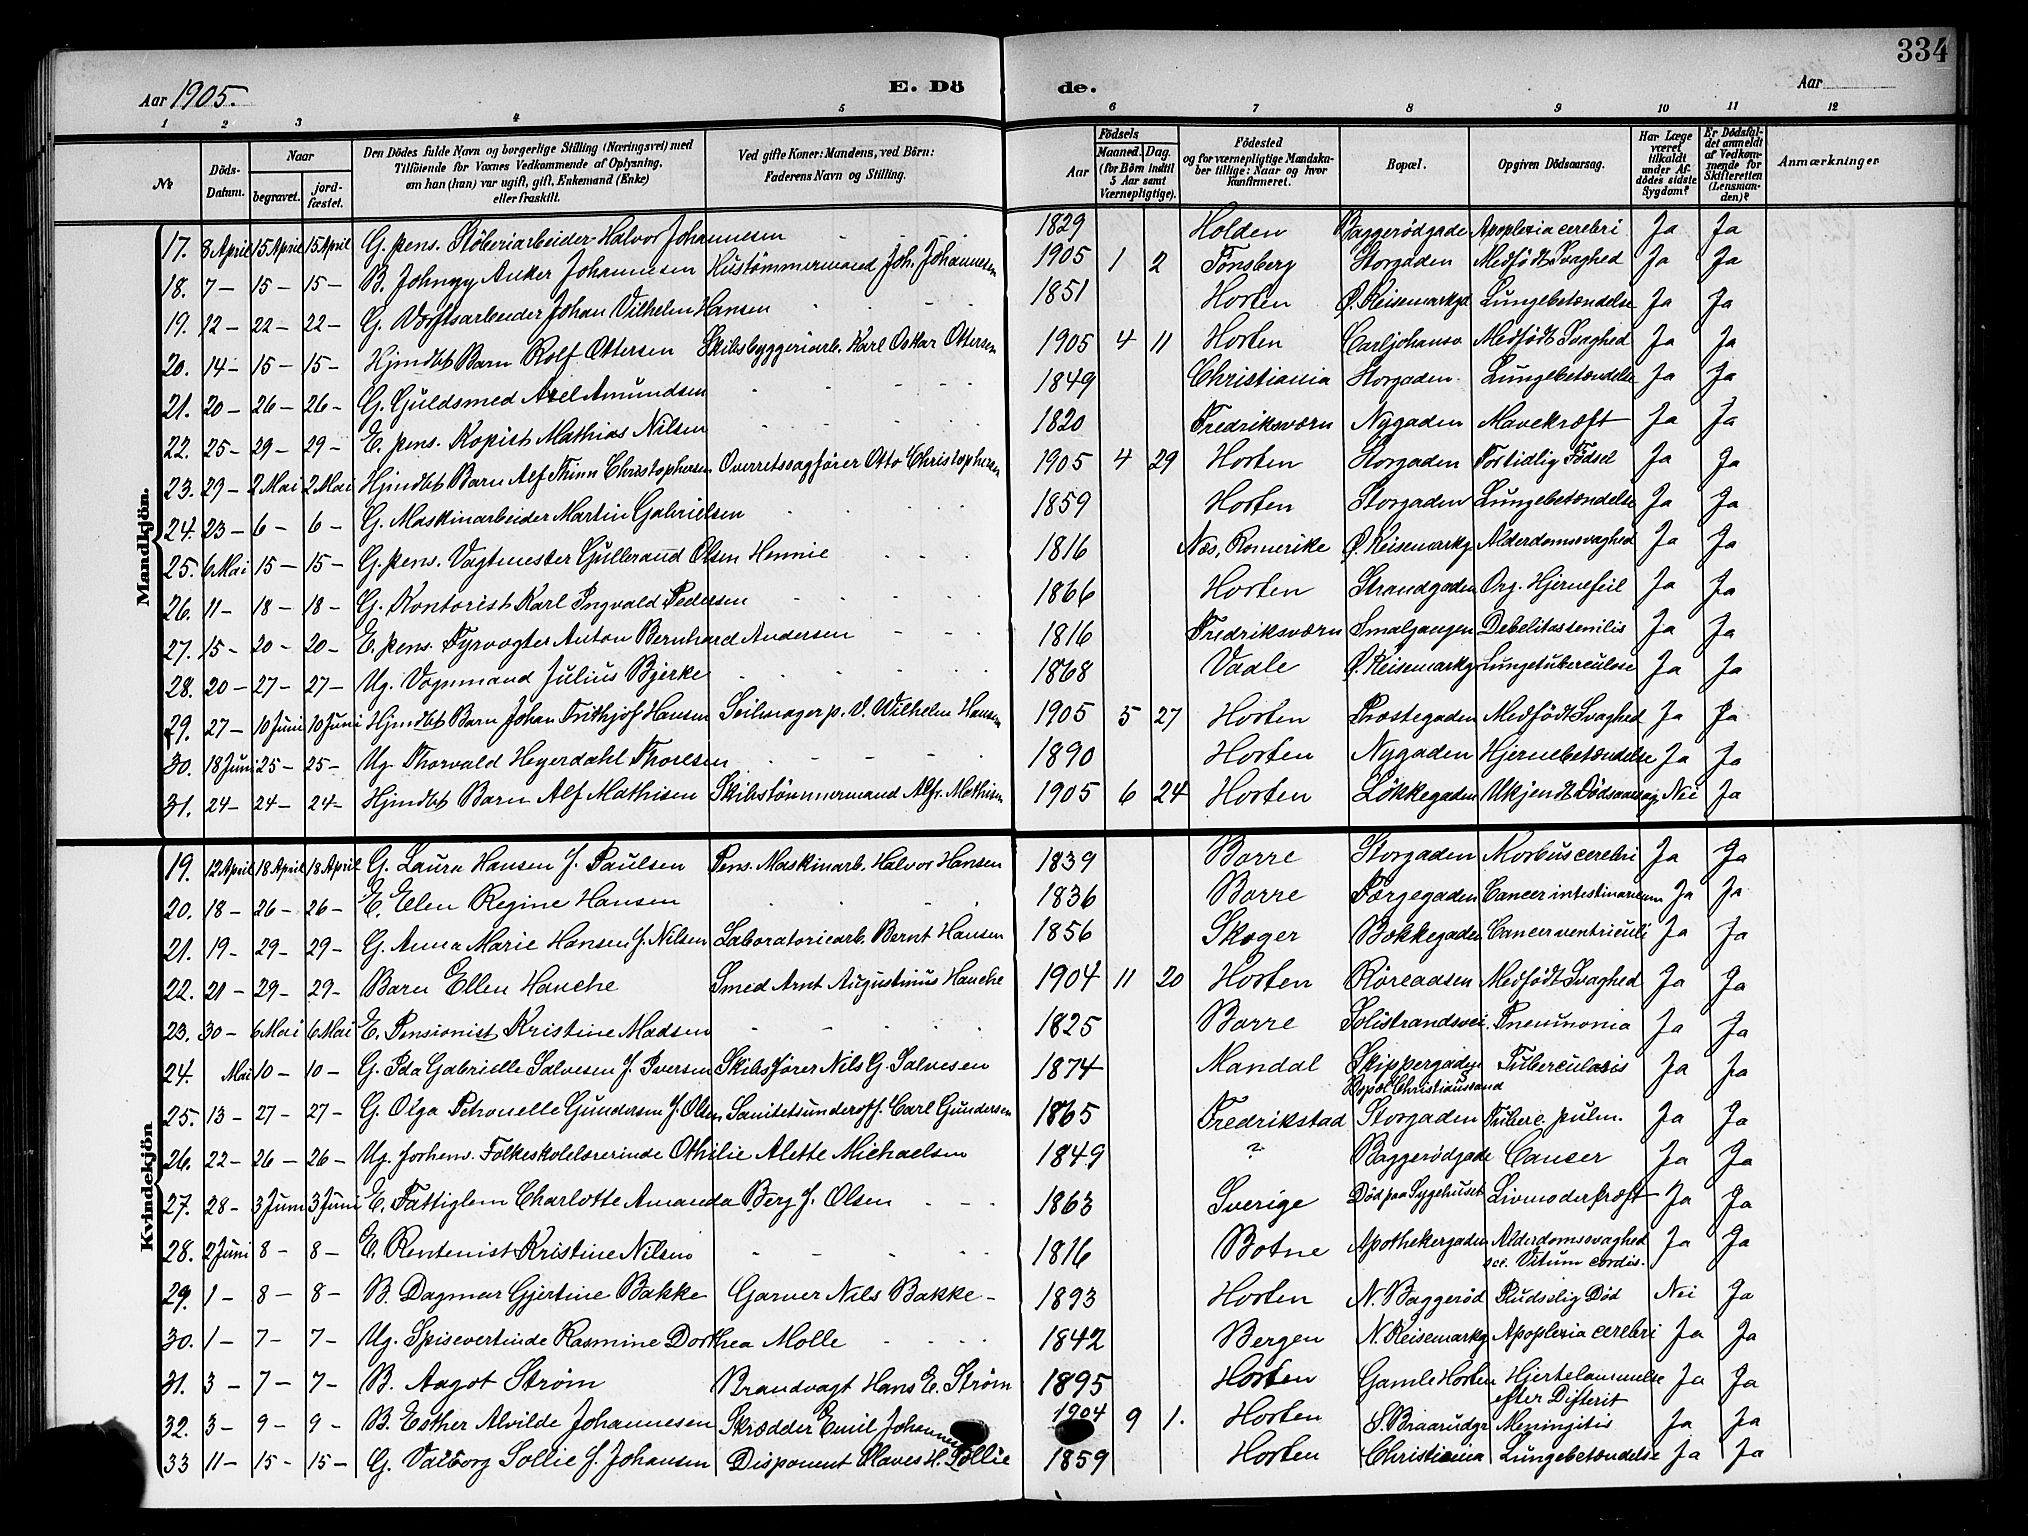 334
Aar 1905.
E. Dö de.
Aar
1 2 3 4 5 6 7 8 9 10 11 12
№ Döds-Datum. Naar begravet. jordfæstet. Den Dödes fulde Navn og borgerlige Stilling (Næringsvei) med Tilföiende for Voxnes Vedkommende af Oplysning, om han (hun) var ugift, gift, Enkemand (Enke) eller fraskilt. Ved gifte Koner: Mandens, ved Börn: Faderens Navn og Stilling. Födsels Aar Maaned. Dag. (for Börn indtil 5 Aar samt Værnepligtige). Födested og for værnepligtige Mandskaber tillige: Naar og hvor Konfirmeret. Bopæl. Opgiven Dödsaarsag. Har Læge været tilkaldt under Afdödes sidste Sygdom? Er Dödsfaldet anmeldt af Vedkommende for Skifteretten (Lensmanden)? Anmærkninger
Mandkjön.
17. 8 April 15 April 15 April G. pens. Støberiarbeider Halvor Johannesen - - - 1829 Holden Baggerødgade Apoplexia cerebri Ja Ja
18. 7 - 15 - 15 - B. Johnny Anker Johannesen Hustømmermand Joh. Johannesen 1905 1 2 Tønsberg Storgaden Medfødt Svaghed Ja Ja
19. 12 - 22 - 22 - G. Værftsarbeider Johan Vilhelm Hansen - - - 1851 Horten Ø. Keisemarkgd Lungebetændelse Ja Ja
20. 14 - 15 - 15 - Hjmdbt Barn Rolf Ottersen Skibsbyggeriarb. Karl Oskar Ottersen 1905 4 11 Horten Carljohansv Medfødt Svaghed Ja Ja
21. 20 - 26 - 26 - G. Guldsmed Axel Amundsen - - - 1849 Christiania Storgaden Lungebetændelse Ja Ja
22. 25 - 29 - 29 - E. pens. Kopist Mathias Nilsen - - - 1820 Fredriksværn Nygaden Mavekræft Ja Ja
23. 29 - 2 Mai 2 Mai Hjmdbt Barn Alf Thinn Christophersen Overretssagfører Otto Christophersen 1905 4 29 Horten Storgaden Fortidlig Fødsel Ja Ja
24. 23 - 6 - 6 - G. Maskinarbeider Martin Gabrielsen - - - 1859 Horten Storgaden Lungebetændelse Ja Ja
25. 6 Mai 15 - 15 - G. pens. Vagtmester Gulbrand Olsen Hennie - - - 1816 Næs, Romerike Ø. Keisemarkg Alderdomssvaghed Ja Ja
26. 11 - 18 - 18 - G. Kontorist Karl Ingvald Pedersen - - - 1866 Horten Strandgaden Org. Hjernefeil Ja Ja
27. 15 - 20 - 20 - E. pens. Fyrvogter Anton Bernhard Andersen - - - 1816 Fredriksværn Smalgangen Debelitas senilis Ja Ja
28. 20 - 27 - 27 - Ug. Vognmand Julius Bjerke - - - 1868 Vaale Ø. Keisemarkg Lungetuberculose Ja Ja
29. 27 - 10 Juni 10 Juni Hjmdbt Barn Johan Frithjof Hansen Seilmager p. V. Wilhelm Hansen 1905 5 27 Horten Præstegaden Medfødt Svaghed Ja Ja
30. 18 Juni 25 - 25 - Ug. Thorvald Heyerdahl Thorsen - - - 1890 Horten Nygaden Hjernebetændelse Ja Ja
31. 24 - 24 - 24 - Hjmdbt Barn Alf Mathisen Skibstømmermand Alfr. Mathisen 1905 6 24 Horten Løkkegaden Ukjendt Dødsaarsag Nei Ja
Kvindekjön
19. 12 April 18 April 18 April G. Laura Hansen f. Paulsen Pens. Maskinarb. Halvor Hansen 1839 Borre Storgaden Morbus cerebri Ja Ja
20. 18 - 26 - 26 - E. Ellen Regine Hansen - - - 1836 Borre Færgegaden Cancer intestinarium Ja Ja
21. 19 - 29 - 29 - G. Anna Marie Hansen f. Nilsen Laboratoriearb. Bernt Hansen 1856 Skoger Bakkegaden Cancer ventriculi Ja Ja
22. 21 - 29 - 29 - Barn Ellen Hanche Smed Arnt Augustinius Hanche 1904 11 20 Horten Røreaasen Medfødt Svaghed Ja Ja
23. 30 - 6 Mai 6 Mai E. Pensionist Kristine Madsen - - - 1825 Borre Solistrandsvei. Pneumonia Ja Ja
24. Mai 10 - 10 - G. Ida Gabrielle Salvesen f. Iversen Skibsfører Nils G. Salvesen 1874 Mandal Skippergaden Bopæl Christianssand Tuberculosis Ja Ja
25. 13 - 27 - 27 - G. Olga Petronelle Gundersen f. Olsen Sanitetsunderoff. Carl Gundersen 1865 Fredrikstad Storgaden Tuberc. pulm. Ja Ja
26. 22 - 26 - 26 - Ug. forhens. Folkeskolelærerinde Othilie Alette Michaelsen 1849 ? Baggerødgade Cancer Ja Ja
27. 28 - 3 Juni 3 Juni E. Fattiglem Charlotte Amanda Berg f. Olsen - - - 1863 Sverige Død paa Sygehuset Livmoderkræft Ja Ja
28. 2 Juni 8 - 8 - E. Rentenist Kristine Nilsen - - - 1816 Botne Apothekergaden Alderdomssvaghed sec. Vitum cordis. Ja Ja
29. 1 - 8 - 8 - B. Dagmar Gjertine Bakke Garver Nils Bakke - 1893 Horten N. Baggerød Pludselig Død Nei Ja
30. 1 - 7 - 7 - Ug. Spisevertinde Rasmine Dorthea Molle - - - 1842 Bergen N. Keisemarkg Apoplexia cerebri Ja Ja
31. 3 - 7 - 7 - B. Aagot Strøm Brandvagt Hans E. Strøm 1895 Horten Gamle Horten Hjertelammelse efter Difterit Ja Ja
32. 3 - 9 - 9 - B. Esther Alvilde Johannesen Skrædder Emil Johannesen 1904 9 1. Horten S. Braarudgt Meningitis Ja Ja
33 11 - 15 - 15 - G. Valborg Sollie f. Johansen Disponent Claves H. Sollie 1859 Horten Christiania Lungebetændelse Ja Ja